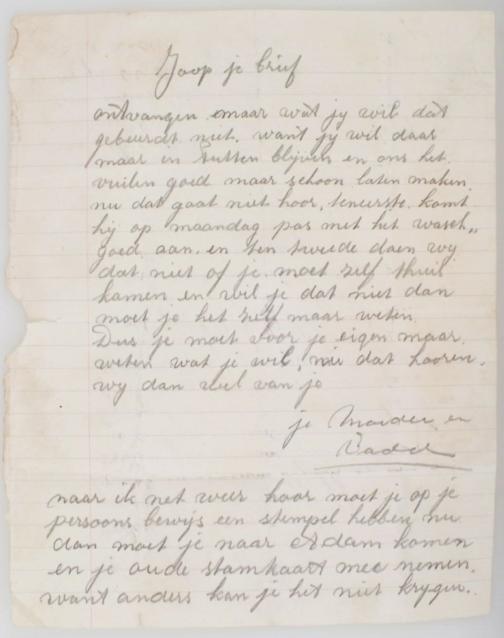 Joop je brief
ontvangen maar wat jy wil dat
gebeurdt niet. want jy wil daar
maar in rusten blijven en ons het
vuilen goed maar schoon laten maken
nu dat gaat niet hoor, teneurste komt
hij op maandag pas met het wasch„
goed aan. en ten tweede doen wy
dat niet of je moet zelf thuis
komen en wil je dat niet dan
moet je het zelf maar weten.
Dus je moet voor je eigen maar
weten wat je wil, nu dat hooren
wy dan wel van je
je Moeder en
Vader
naar ik net weer hoor moet je op je
persoons bewijs een stempel hebben nu
dan moet je naar komen
en je oude stamkaart mee nemen.
want anders kan je het niet krygen.